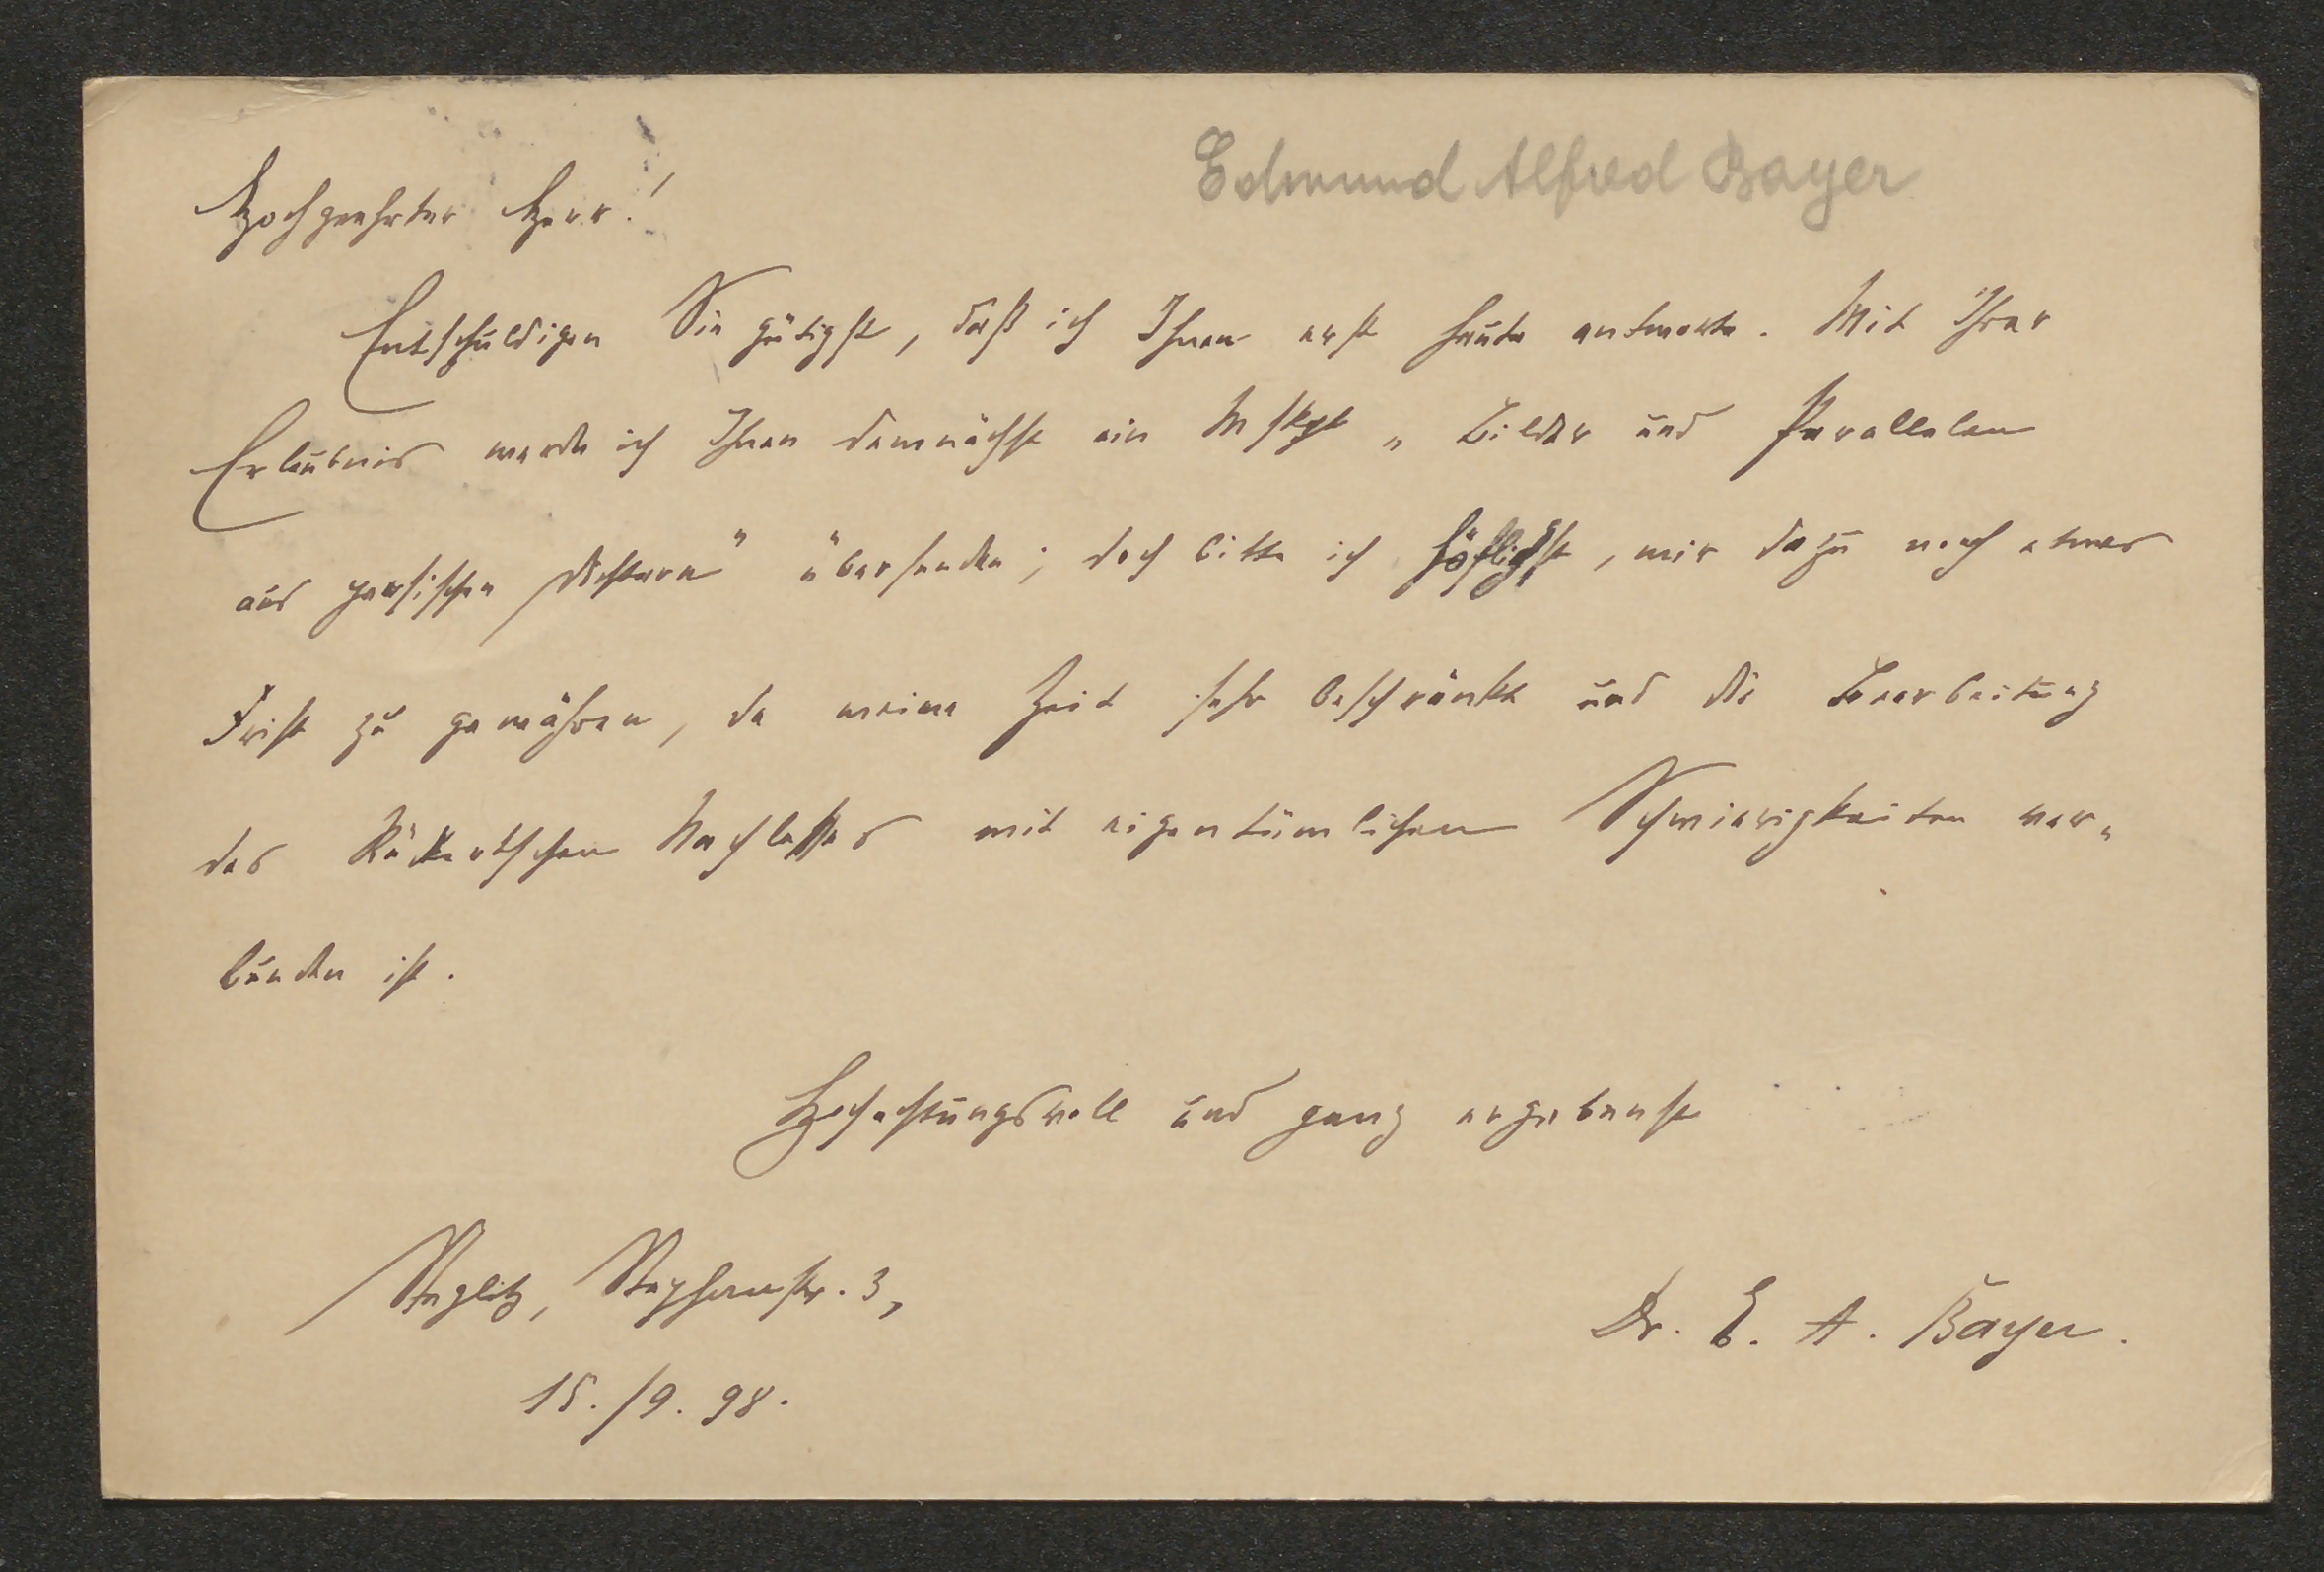 Edmund Alfred Bayer
Hochgeehrter Herr!
Entschuldigen Sie gütigst, daß ich Ihnen erst heute antworte. Mit Ihrer
Erlaubnis werde ich Ihnen demnächst ein Mskpt „Bilder und Parallelen
aus persischen Dichtern" übersenden; doch bitte ich höflichst, mir dazu noch etwas
Frist zu gewähren, da meine Zeit sehr beschränkt und die Bearbeitung
des Rückertschen Nachlasses mit eigentümlichen Schwierigkeiten ver-
bunden ist.
Hochachtungsvoll und ganz ergebenst
Steglitz, Stephanstr. 3,
Dr. E. A. Bayer.
15./9. 98.